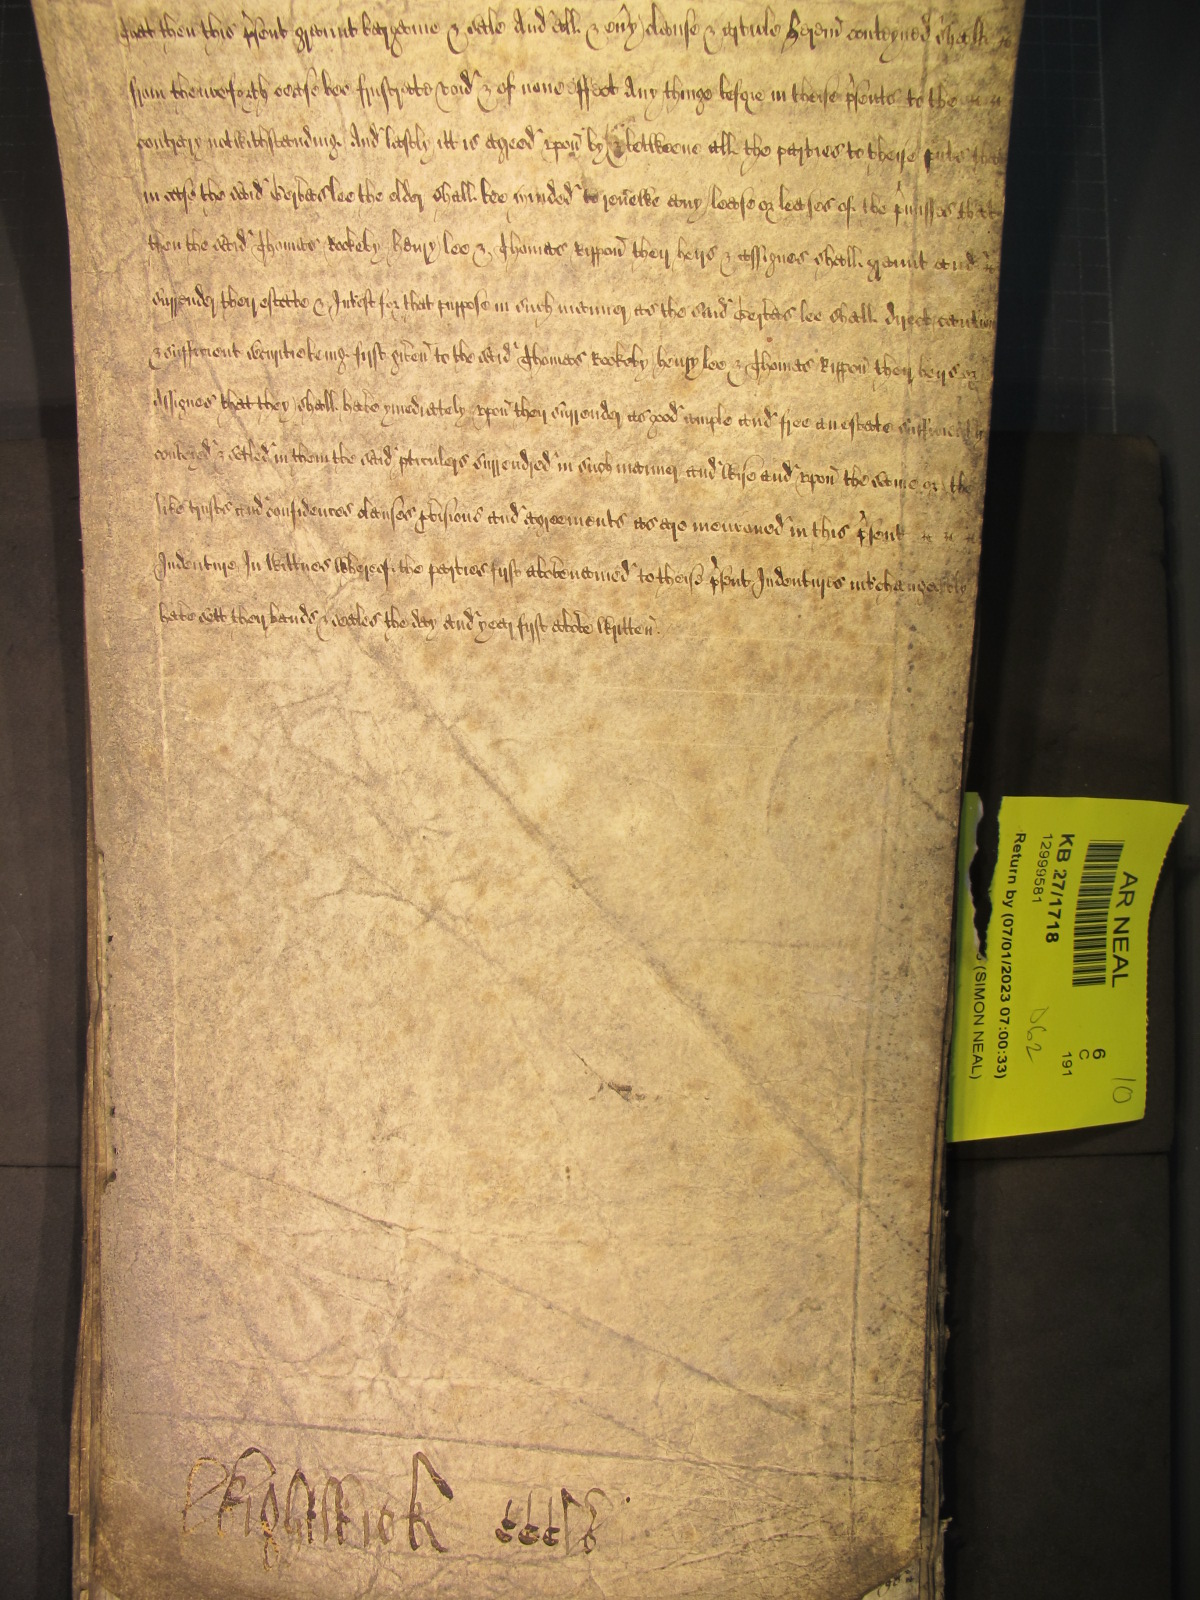 that then this p̃sent graunt bargaine & sale And all & ev̾y clause & article herein conteyned shall
from thenceforth cease bee frustrate void & of none effect Any thinge before in theise p̃sents to the
contrary notwithstanding. And lastly itt is agreed upon by & betweene all the parties to theise p̃nts that
in case the said lee the elder shall bee minded to renewe any lease or leases of the p̃misses that
then the said Thomas Rookeby henry lee & Thomas Rippon their heirs & assignes shall graunt and
surrender their estate & Interest for that purpose in such manner as the said lee shall direct caution
& sufficient securitie being first given to the said Thomas Rookeby henry lee & Thomas Rippon their heirs or
Assignes that they shall have ymediately upon their surrender as good ample and free an estate sufficiently
conveyed & setled in them the said p̃ticulers surrendred in such manner and wise and upon the same or the
like trusts and confidences clauses p̃visions and agreements as are mencioned in this p̃sent
Indenture In wittnes whereof the parties first abovenamed to theise p̃sent Indentures interchangeably
have sett their hands & seales the day and year first above written.
AR NEAL
KB 27/1718
12999581
Return by (07/01/2023 07:00:33)
(SIMON NEAL)
6
C
191
D62
10